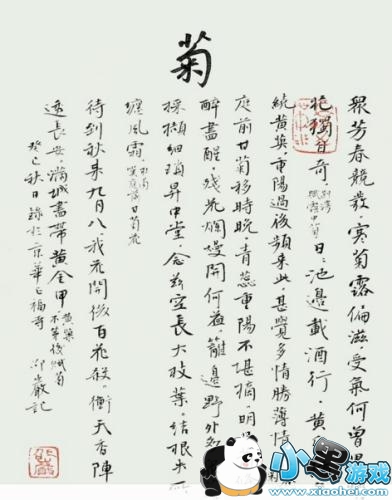 菊
眾芳春競發寒菊露偏滋受氣何曾異
花獨自奇 日日池邊載酒行黃
繞黃英重陽過後頻來此甚覺多情勝薄情
庭前甘菊移時晚青蕊重陽不堪摘明
醉盡醒殘花爛熳開何益籬邊野外多
採擷細瑣昇中堂念茲空長大枝葉結根失所
纏風霜 杜甫 嘆庭前甘菊花
待到秋來九月八我花開後百花殺衝天香陣
透長安滿城盡帶黃金甲 黃巢 不第後賦菊
癸巳秋日錄於京華 福寺 記
小黑游戏
www.xiaohei.com